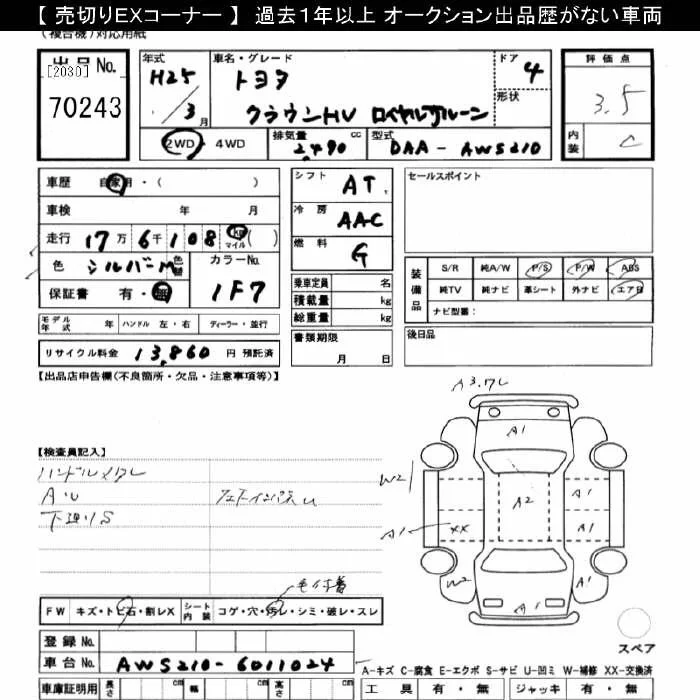 【 売切りEXコーナー 】 過去1年以上 オークション出品歴がない車両
(複合機)対応用紙
出品 No.
[2030]
70243
年式
H25
/3月
車名・グレード
トヨタ
クラウンHV ロイヤルサルーン
ドア
4
形状
評価点
3.5
内装
C
2WD・4WD
排気量
2,490 cc
型式
DAA-AWS210
車歴 自家用・( )
車検 年 月
走行 17万6千108 km マイル ( )
色 シルバーM 色替
カラーNo.
1F7
保証書 有・無
シフト AT
冷房 AAC
燃料 G
乗車定員 名
積載量 kg
総重量 kg
書類期限
月 日
セールスポイント
装備品
S/R 純A/W P/S P/W ABS
純TV 純ナビ 革シート 外ナビ エアB
ナビ型番:
後日品
モデル年式 年 ハンドル 左・右 ディーラー・並行
リサイクル料金 13,860 円 預託済
【出品店申告欄(不良箇所・欠品・注意事項等)】
【検査員記入】
ハンドルメクレ
下廻りS
A3.7L
A1
W2
A2
A1
A1
XX
A1
W2
A1
A1
毛付着
FW キズ・トビ石・割レX
シート内装 コゲ・穴・汚レ・シミ・破レ・スレ
登録 No.
車台 No. AWS210-6011024
スペア
A-キズ C-腐食 E-エクボ S-サビ U-凹ミ W-補修 XX-交換済
車庫証明用 長さ cm 幅 cm 高さ cm
工具 有・無 ジャッキ 有・無